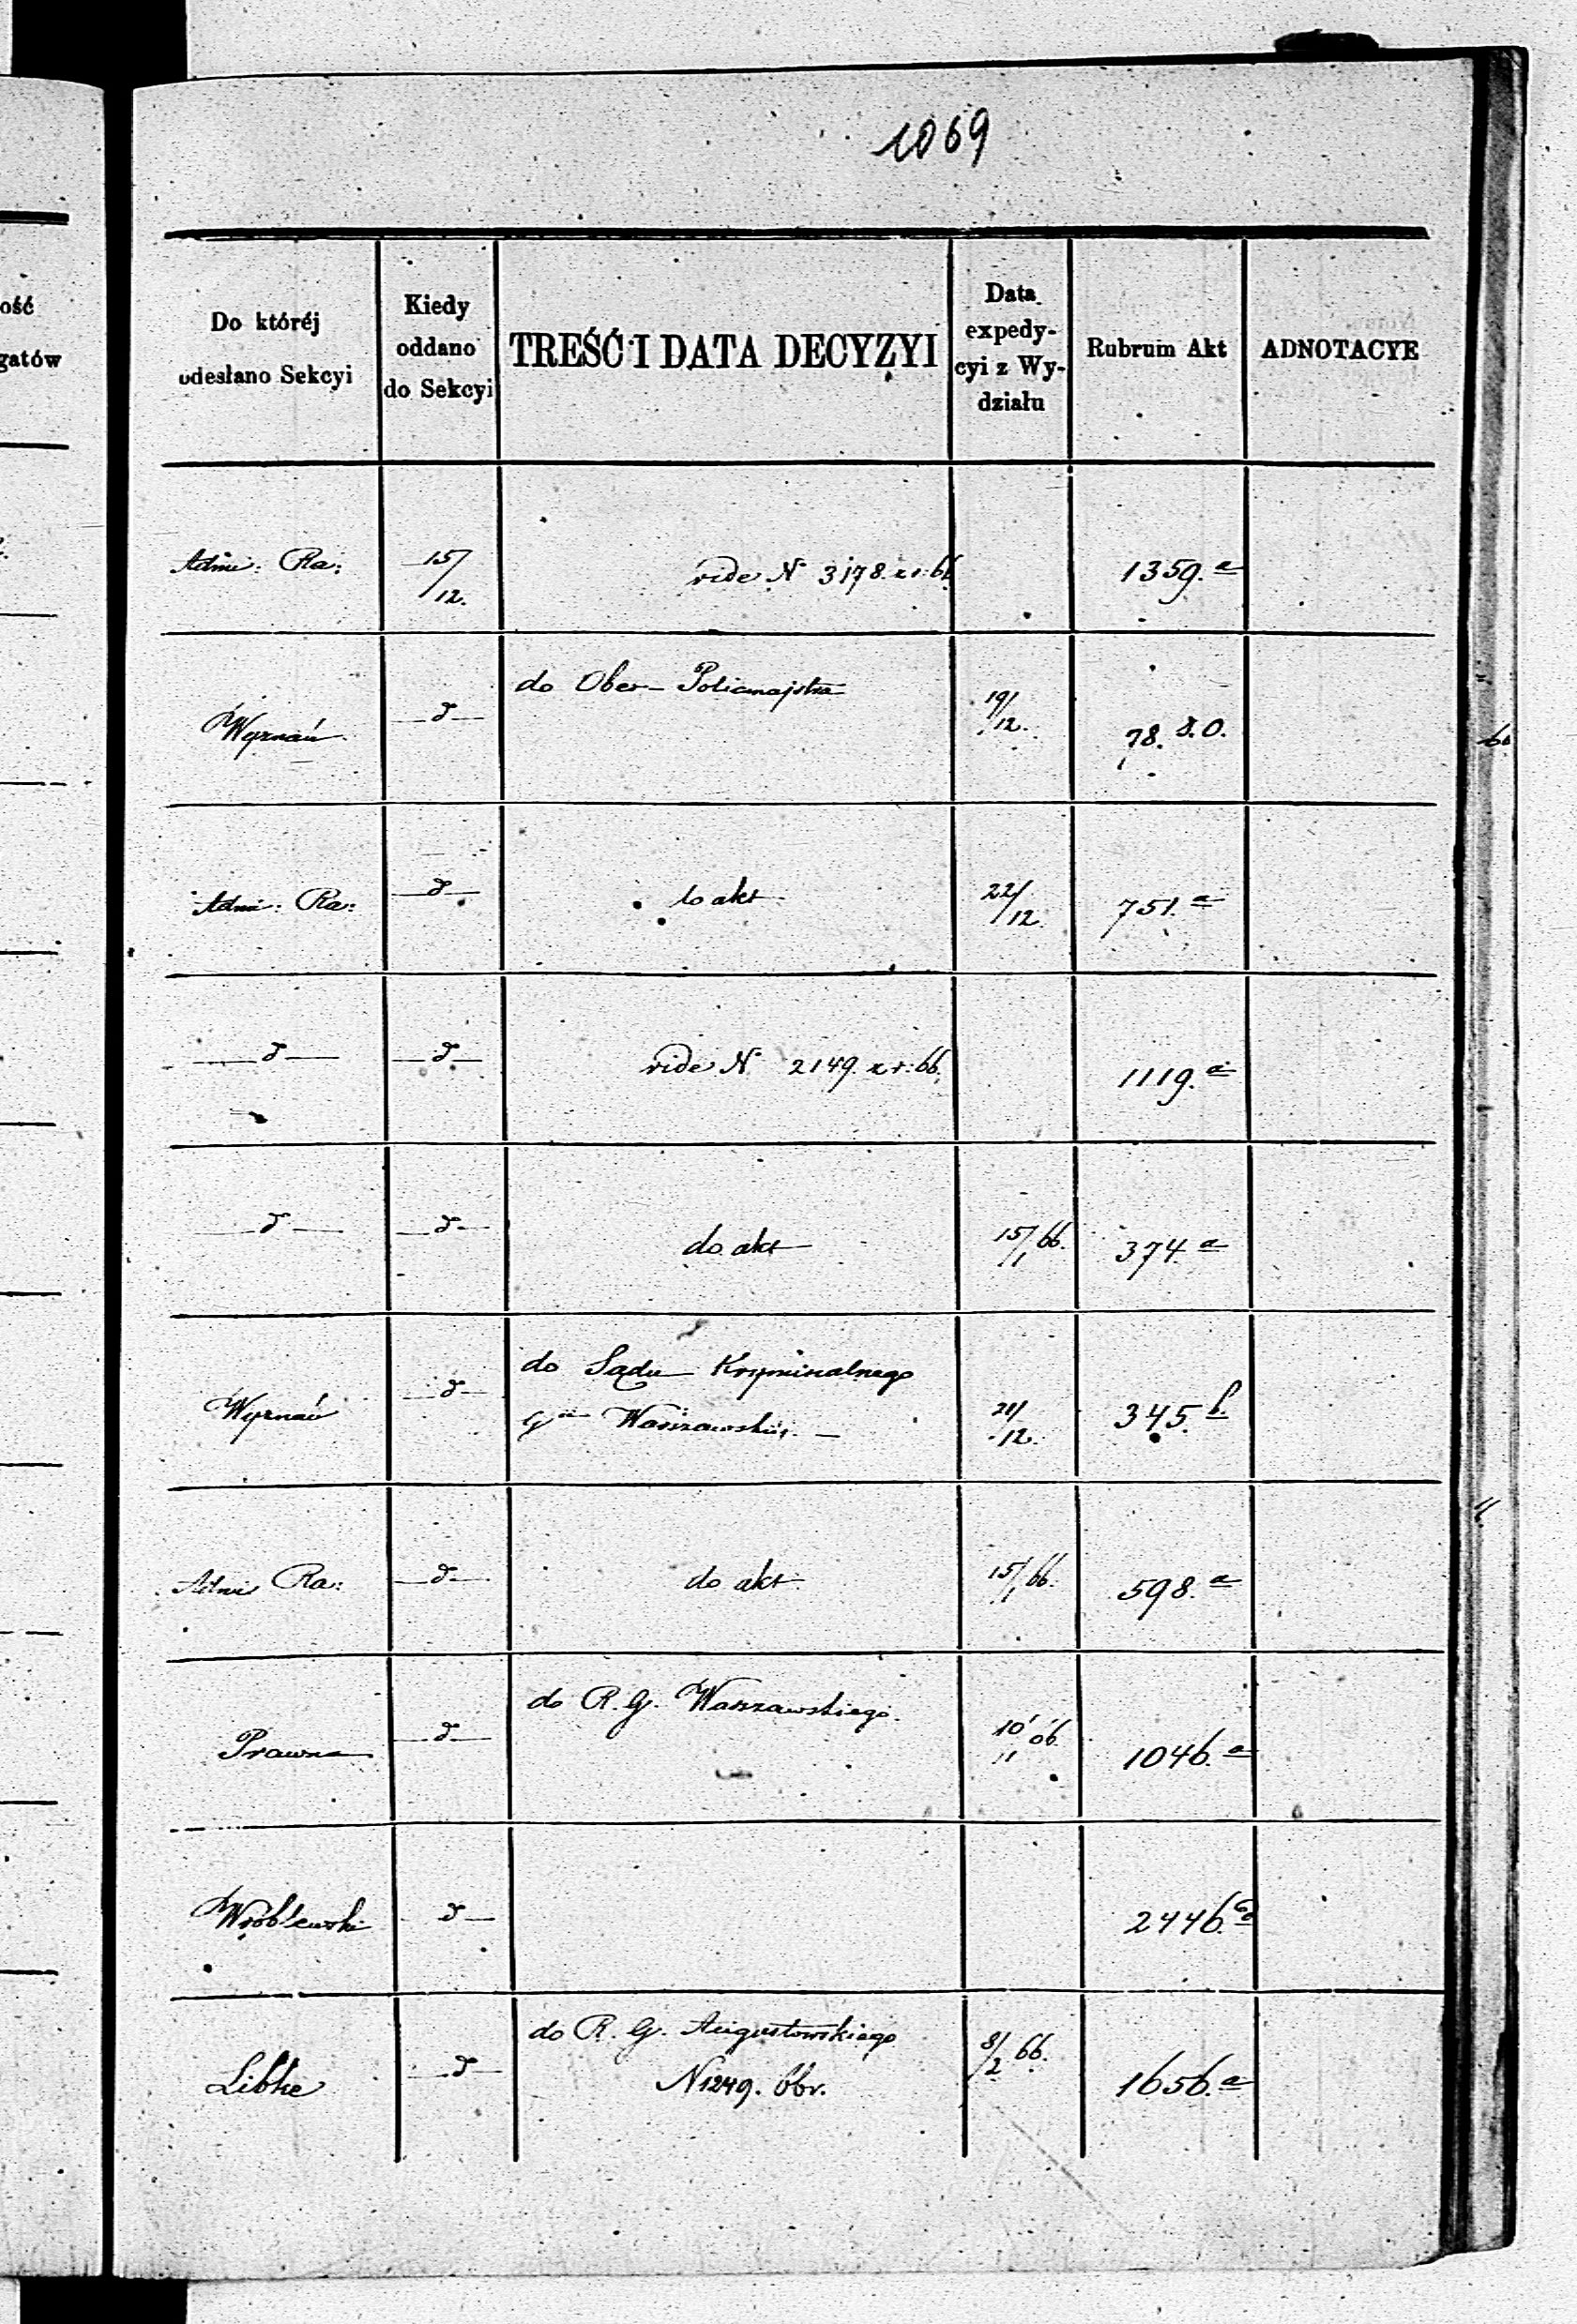 1069
ość
gatów
Do któréj
odesłano Sekcyi
Kiedy
oddano
do Sekcyi
TREŚĆ I DATA DECYZYI
Data
expedy-
cyi z Wy-
działu
Rubrum Akt
ADNOTACYE
Admi: Ra: 15/12. vide N 3178. z r: 66 1359. a
Wyznań d do Ober-Policmajstra 19/12. 78. S.O.
Admi: Ra: d do akt 22/12. 751. a
d d vide N 2149. z r: 66. 1119. a
d d do akt 15/1 66. 374. a
Wyznań d do Sądu Kryminalnego
G Warszawskiej. 21/12. 345. b.
Admi Ra: d do akt. 15/1 66. 598. a
Prawna d do R. G. Warszawskiego. 1046. a
Wróblewski d 2446.
Libke d do R. G. Augustowskiego 8/2 66.
N 1249. 66 r. 1656. a